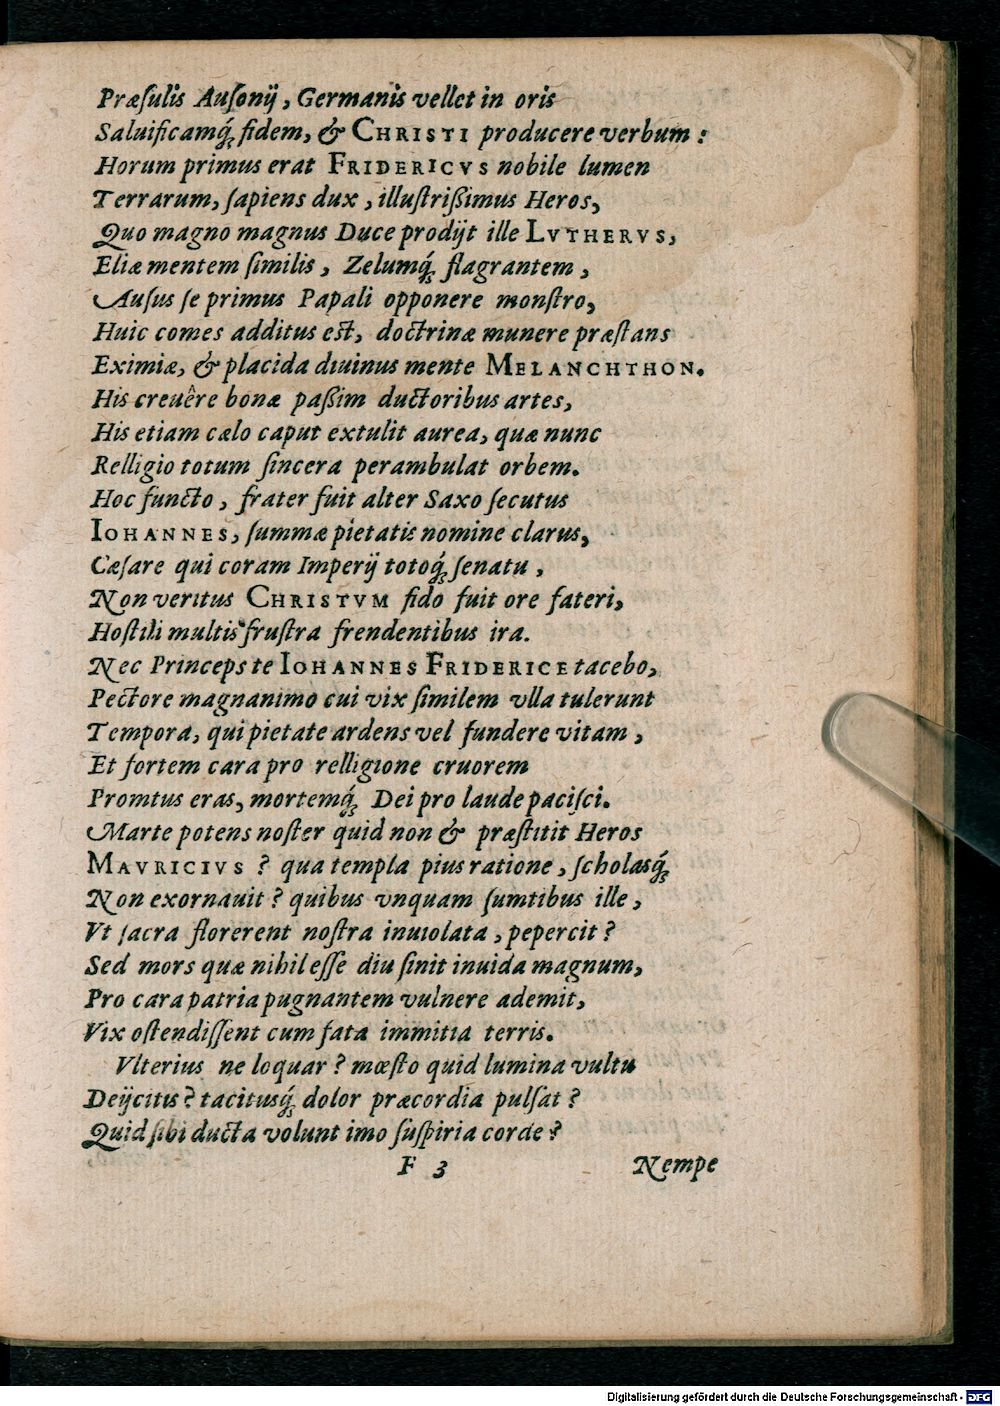 Præſulis Auſonij, Germanis vellet in oris
Saluificamq́; fidem, & CHRISTI producere verbum:
Horum primus erat FRIDERICVS nobile lumen
Terrarum, ſapiens dux, illuſtrißimus Heros,
Quo magno magnus Duce prodijt ille LVTHERVS,
Eliæ mentem ſimilis, Zelumq́; flagrantem,
Auſus ſe primus Papali opponere monſtro,
Huic comes additus eſt, doctrinæ munere præſtans
Eximiæ, & placida diuinus mente MELANCHTHON.
His creuêre bonæ paßim ductoribus artes,
His etiam cælo caput extulit aurea, quæ nunc
Relligio totum ſincera perambulat orbem.
Hoc functo, frater fuit alter Saxo ſecutus
IOHANNES, ſummæ pietatis nomine clarus,
Cæſare qui coram Imperij totoq́; ſenatu,
Non veritus CHRISTVM fido fuit ore fateri,
Hoſtili multis fruſtra frendentibus ira.
Nec Princeps te IOHANNES FRIDERICE tacebo,
Pectore magnanimo cui vix ſimilem vlla tulerunt
Tempora, qui pietate ardens vel fundere vitam,
Et fortem cara pro relligione cruorem
Promtus eras, mortemq́; Dei pro laude paciſci.
Marte potens noſter quid non & præſtitit Heros
MAVRICIVS? qua templa pius ratione, ſcholasq́;
Non exornauit? quibus vnquam ſumtibus ille,
Vt ſacra florerent noſtra inuiolata, pepercit?
Sed mors quæ nihil eſſe diu ſinit inuida magnum,
Pro cara patria pugnantem vulnere ademit,
Vix oſtendiſſent cum fata immitia terris.
Vlterius ne loquar? mœſto quid lumina vultu
Deijcitis? tacitusq́; dolor præcordia pulſat?
Quid ſibi ducta volunt imo ſuſpiria corde?
F 3 Nempe
Digitalisierung gefördert durch die Deutsche Forschungsgemeinschaft - DFG